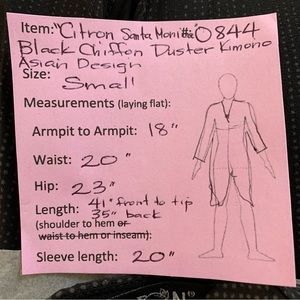 Item: "Citron Santa Monica #0844
Black Chiffon Duster Kimono
Asian Design
Size:
Small
Measurements (laying flat):
Armpit to Armpit: 18"
Waist: 20"
Hip: 23"
Length: 41" front to tip
35" back
(shoulder to hem or
waist to hem or inseam):
Sleeve length: 20"